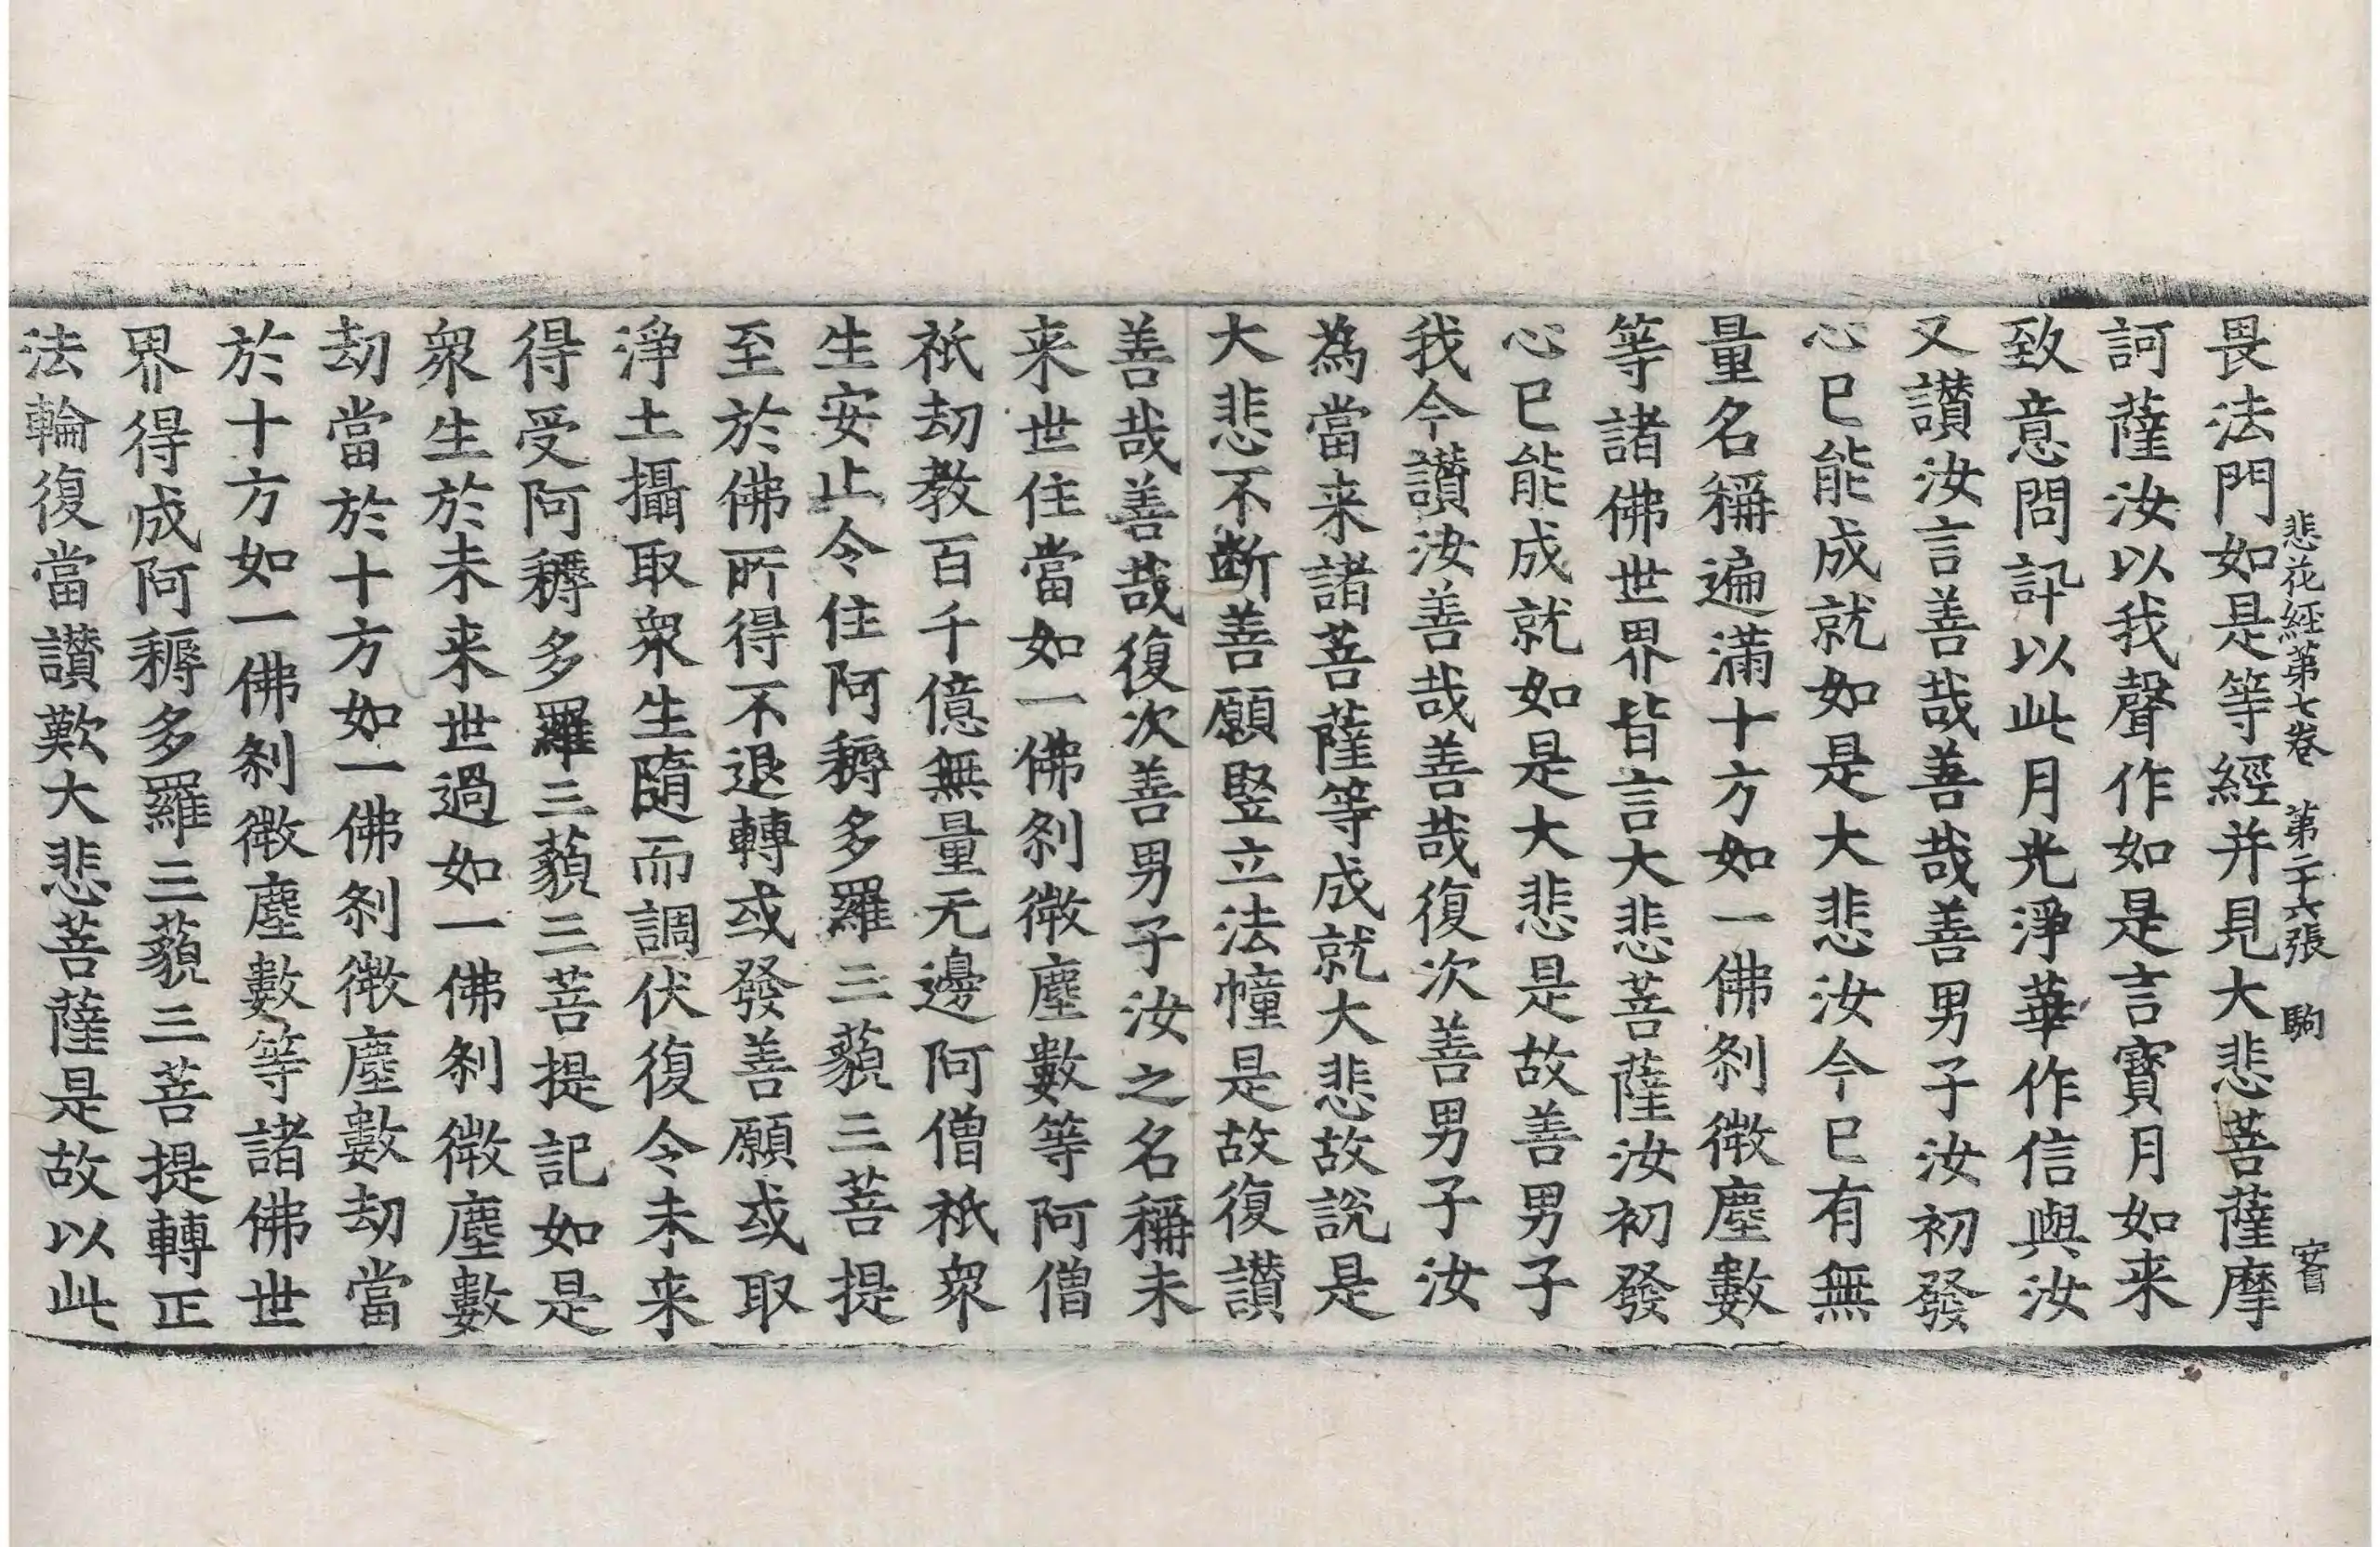 悲花経第七卷 第二十六張 駒
畏法門如是等經并見大悲菩薩摩
訶薩汝以我聲作如是言寶月如来
致意問訊以此月光淨華作信與汝
又讃汝言善哉善哉善男子汝初發
心已能成就如是大悲汝今已有無
量名稱遍滿十方如一佛剎微塵數
等諸佛世界皆言大悲菩薩汝初發
心已能成就如是大悲是故善男子
我今讃汝善哉善哉復次善男子汝
為當来諸菩薩等成就大悲故說是
大悲不断善願竪立法幢是故復讃
善哉善哉復次善男子汝之名稱未
来世住當如一佛剎微塵數等阿僧
祇劫教百千億無量无邊阿僧祇衆
生安止令住阿耨多羅三藐三菩提
至於佛所得不退轉或發善願或取
淨土攝取衆生隨而調伏復令未来
得受阿耨多羅三藐三菩提記如是
衆生於未来世過如一佛剎微塵數
劫當於十方如一佛剎微塵數劫當
於十方如一佛剎微塵數等諸佛世
界得成阿耨多羅三藐三菩提轉正
法輪復當讃歎大悲菩薩是故以此